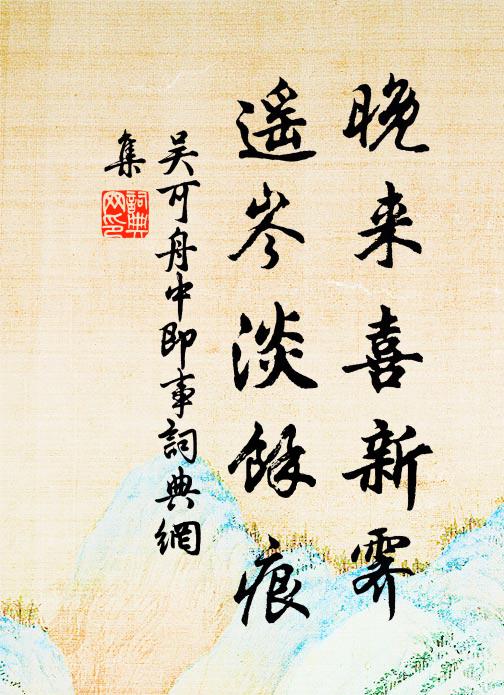 晚来喜新霽
遥岑淡餘痕
吴可舟中即事詞典網
集
詞典网印